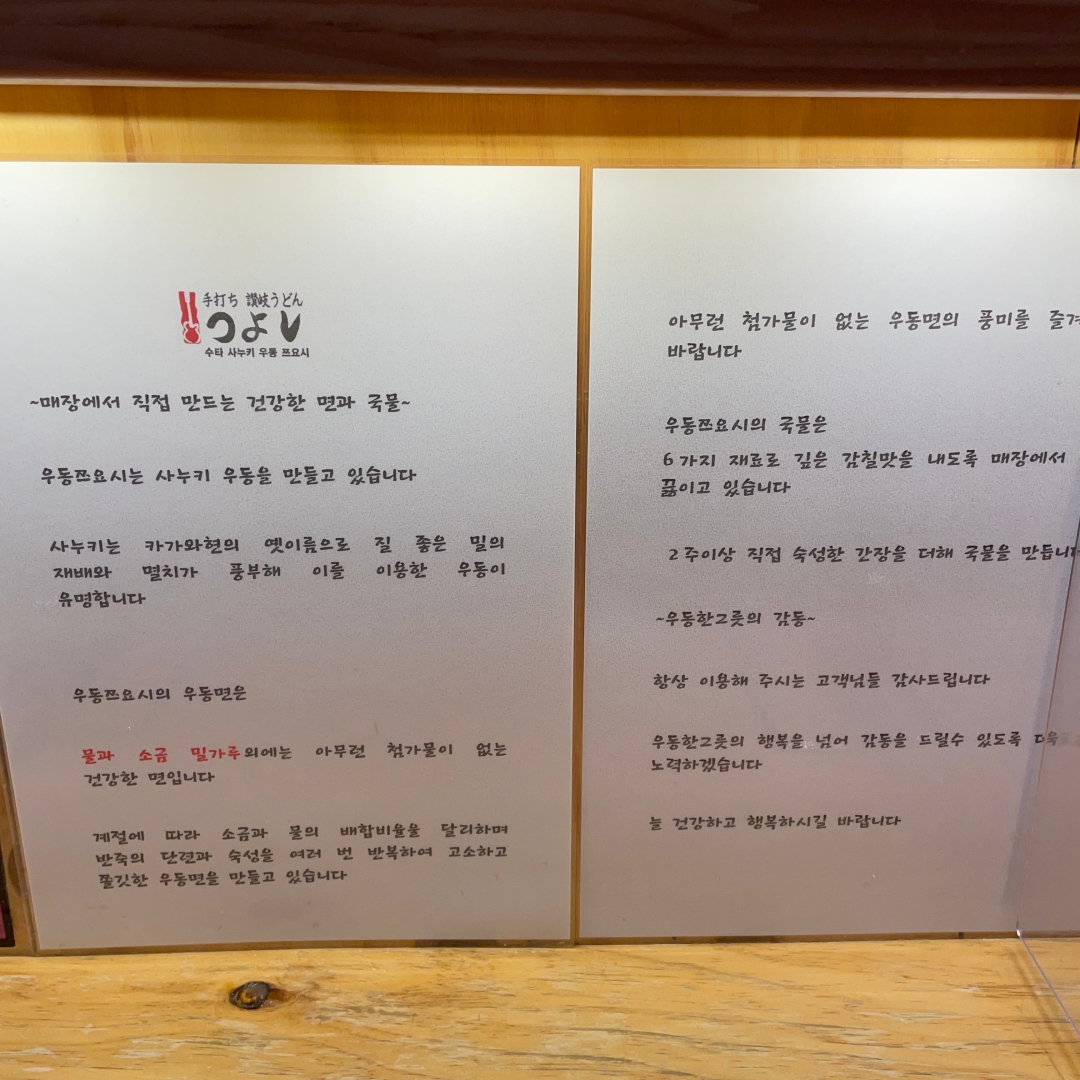 手打ち 讃岐うどん
つよし
수타 사누키 우동 쯔요시
~매장에서 직접 만드는 건강한 면과 국물~
우동쯔요시는 사누키 우동을 만들고 있습니다
사누키는 카가와현의 옛이름으로 질 좋은 밀의
재배와 멸치가 풍부해 이를 이용한 우동이
유명합니다
우동쯔요시의 우동면은
물과 소금 밀가루외에는 아무런 첨가물이 없는
건강한 면입니다
계절에 따라 소금과 물의 배합비율을 달리하며
반죽의 단련과 숙성을 여러 번 반복하여 고소하고
쫄깃한 우동면을 만들고 있습니다
아무런 첨가물이 없는 우동면의 풍미를
바랍니다
우동쯔요시의 국물은
6가지 재료로 깊은 감칠맛을 내도록 매장에서
끓이고 있습니다
2주이상 직접 숙성한 간장을 더해 국물을
~우동한그릇의 감동~
항상 이용해 주시는 고객님들 감사드립니다
우동한그릇의 행복을 넘어 감동을 드릴수 있도록
노력하겠습니다
늘 건강하고 행복하시길 바랍니다